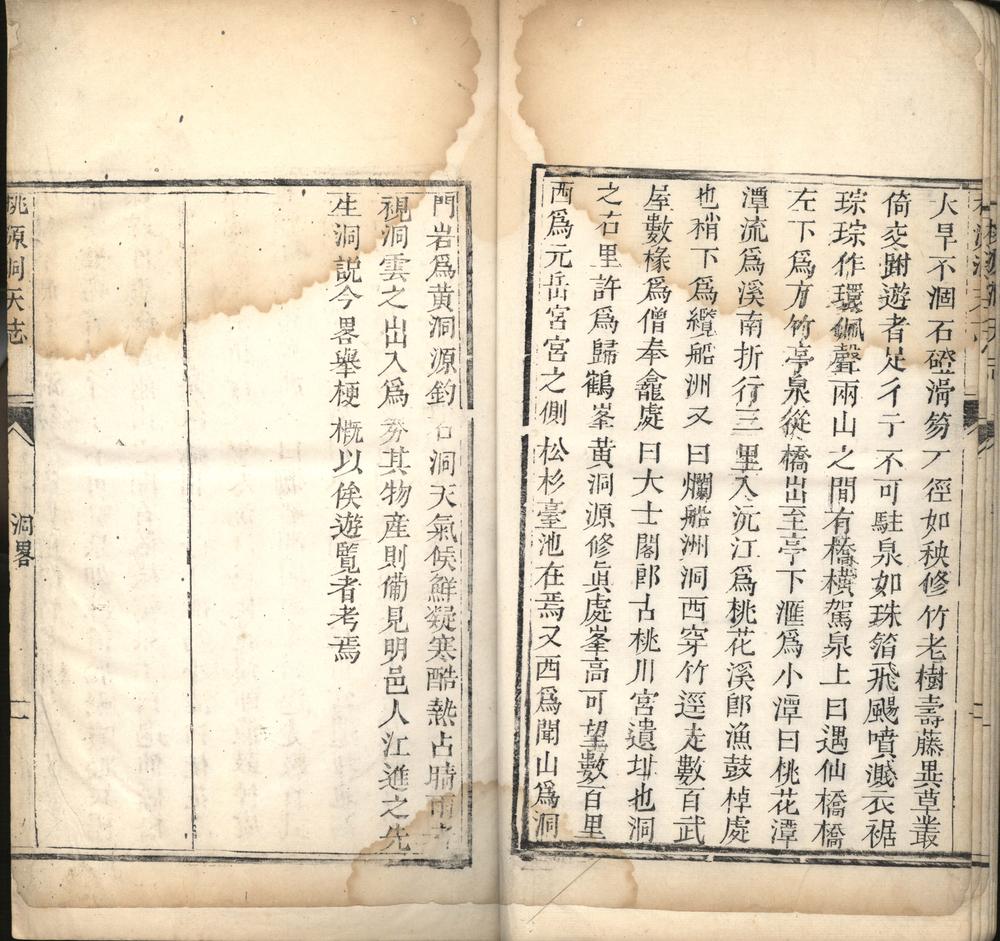 大旱不涸石磴滑笏丆徑如秧修竹老樹壽藤異草叢
倚交跗遊者足彳亍不可駐泉如珠箔飛颺噴濺衣裾
琮琮作環佩聲兩山之間有橋橫駕泉上曰遇仙橋橋
左下為方竹亭泉從橋出至亭下滙為小潭曰桃花潭
潭流為溪南折行三里入沅江為桃花溪郎漁鼓棹處
也稍下為纜船洲又曰爛船洲洞西穿竹逕走數百武
屋數椽為僧奉龕處曰大士閣郎古桃川宮遺址也洞
之右里許為歸鶴峯黃洞源修眞處峯高可望數百里
西為元岳宮宮之側松杉臺池在焉又西為聞山為洞
門岩為黃洞源釣石洞天氣候鮮凝寒酷熱占晴雨者
視洞雲之出入為劵其物產則備見明邑人江進之先
生洞說今畧舉梗概以俟遊覽者考焉
桃源洞天志
洞畧
二